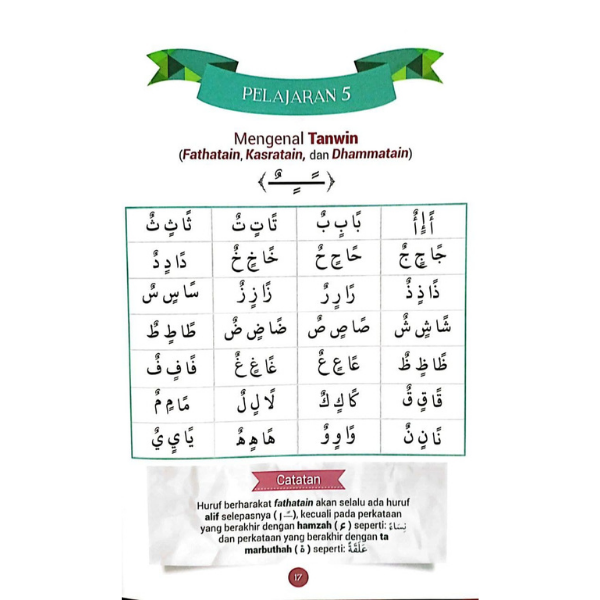 PELAJARAN 5
Mengenal Tanwin
(Fathatain, Kasratain, dan Dhammatain)
ـًـٍـٌ
أً إٍ أٌ بًا بٍ بٌ تًا تٍ تٌ ثًا ثٍ ثٌ
جًا جٍ جٌ حًا حٍ حٌ خًا خٍ خٌ دًا دٍ دٌ
ذًا ذٍ ذٌ رًا رٍ رٌ زًا زٍ زٌ سًا سٍ سٌ
شًا شٍ شٌ صًا صٍ صٌ ضًا ضٍ ضٌ طًا طٍ طٌ
ظًا ظٍ ظٌ عًا عٍ عٌ غًا غٍ غٌ فًا فٍ فٌ
قًا قٍ قٌ كًا كٍ كٌ لًا لٍ لٌ مًا مٍ مٌ
نًا نٍ نٌ وًا وٍ وٌ هًا هٍ هٌ يًا يٍ يٌ
Catatan
Huruf berharakat fathatain akan selalu ada huruf
alif selepasnya (ـًـا), kecuali pada perkataan
yang berakhir dengan hamzah (ء) seperti: نِسَاءً
dan perkataan yang berakhir dengan ta
marbuthah (ة) seperti: عَلَقَةً
17